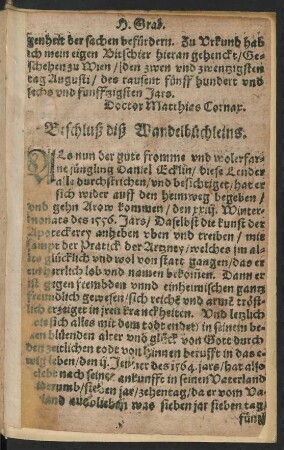 H. Gras.
zenheit der sachen befürdern. Zu Vrkund hab
ich mein eigen Bitschier hieran gehenckt / Ge-
schehen zu Wien / den zwen vnd zwentzigsten
tag Augusti / des tausent fünff hundert vnd
sechs vnd fünffzigsten Jars.
Doctor Matthias Cornax.
Beschluß diß Wandelbüchleins.
ALs nun der gute fromme vnd wolerfar-
ne jüngling Daniel Ecklin / diese Lender
alle durchstrichen / vnd besichtiget / hat er
sich wider auff den heimweg begeben /
vnd gehn Arow kommen / den xxiij. Winter-
monats des 1556. Jars / Daselbst die kunst der
Apoteckerey anheben vben vnd treiben / mit
sampt der Pratick der Artzney / welches jm al-
les glücklich vnd wol von statt gangen / das er
ein herrlich lob vnd namen bekomen. Dann er
ist gegen frembden vnnd einheimischen gantz
freundlich gewesen / sich reiche vnd arme tröst-
lich erzeiget in jren kranckheiten. Vnd letzlich
wie sich alles mit dem todt endet / in seinem be-
sten blüenden alter vnd glück von Gott durch
den zeitlichen todt von hinnen berufft in das e-
wig leben / den ij. Jenner des 1564. jars / hat also
gelebt nach seiner ankunfft in seinen Vaterland
widerumb / sieben jar / zehentag / da er vom Va-
land ausblieben was sieben jar sieben tag /
fünff